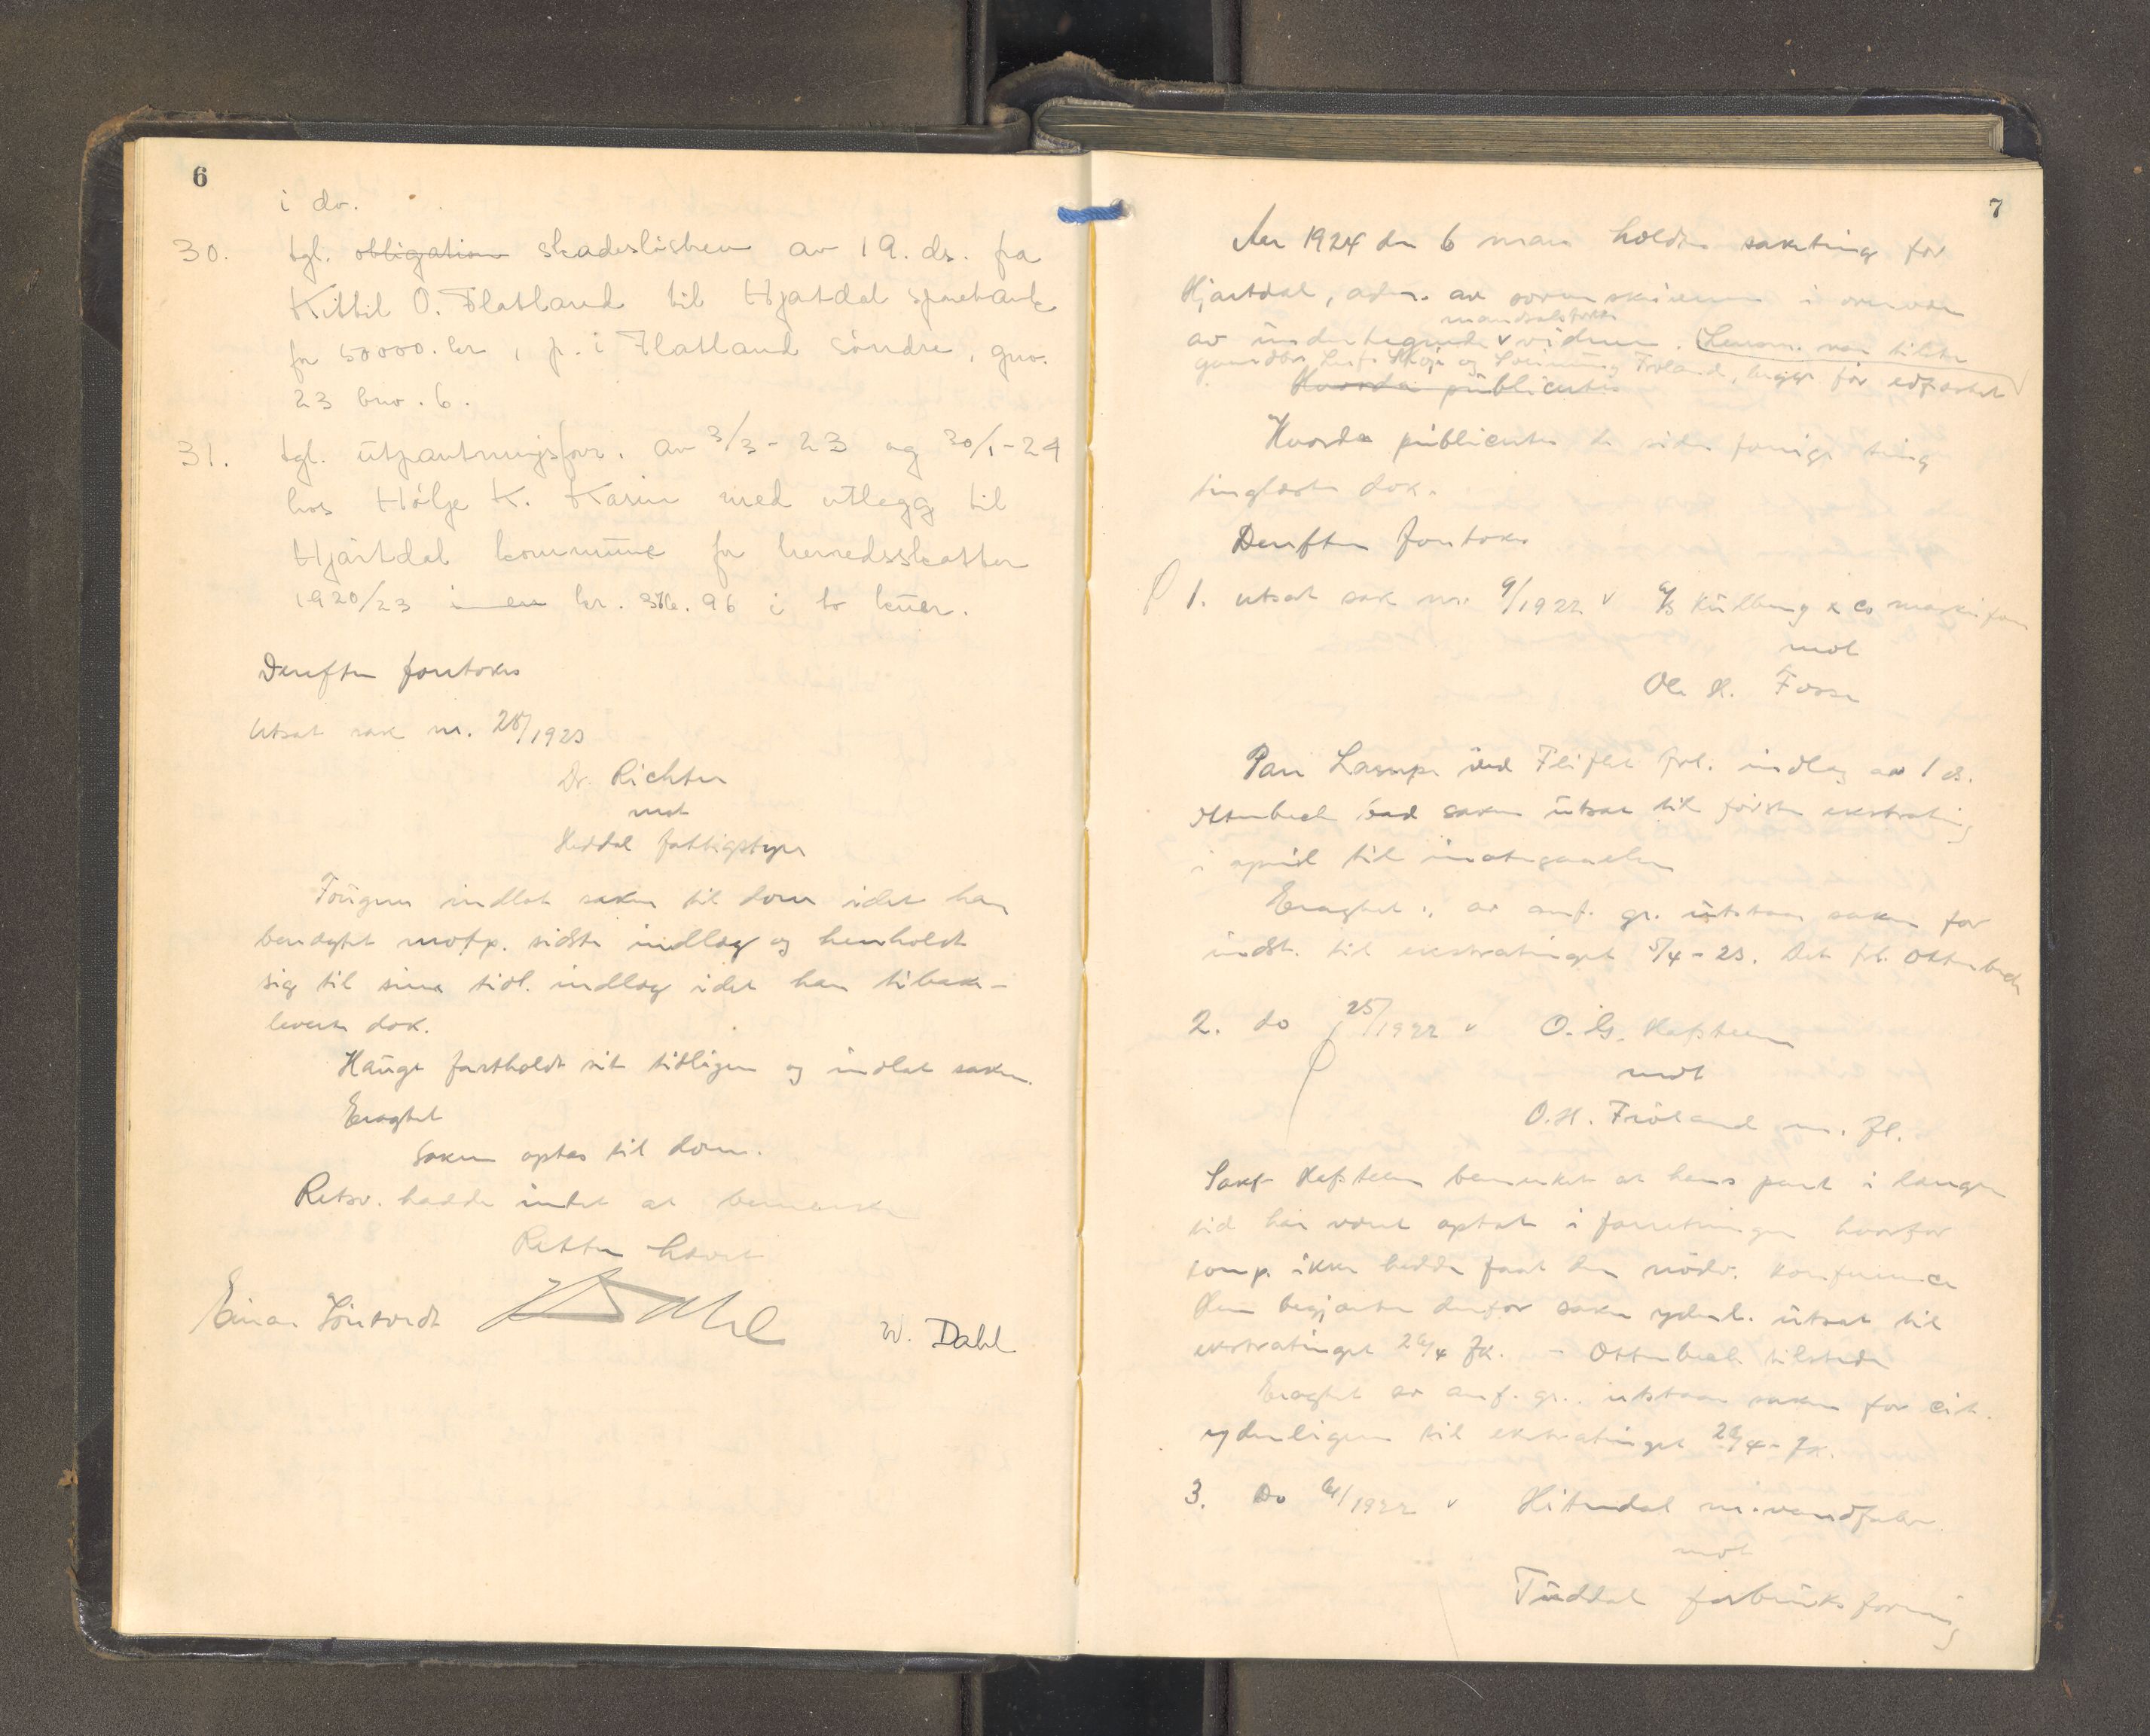 6
i do.
30. tgl. obligation skadeslösbrev av 19. ds. fra
Kittil O. Flatland til Hjartdal sparebank
for 50000. kr, p. i Flatland söndre, gno.
23 bno. 6.
31. tgl. utpantningsforr. av 3/3-23 og 30/1-24
hos Hölje K. Kasin med utlegg til
Hjartdal kommune for herredsskatter
1920/23 kr. 96 i to kuer.
Derefter foretokes
Utsat sak nr. 28/1923
Dr. Richter
mot
Heddal fattigstyre
indlot saken til dom idet han
benegtet motp. sidste indlæg og henholdt
sig til sine tidl. indlæg idet han tilbake-
leverte dok.
Hauge fastholdt sit tidligere og indlot saken.
Eragtet
Saken optas til dom.
Retsv. hadde intet at bemerke
Retten hævet
Einar Dahl W. Dahl
7
Aar 1924 den 6 mars holdtes saketing for
Hjartdal, adm. av sorenskriveren i overvær
av undertegnede v vidner. Lensm. var tilstede
mandsalsførte
gaardbr. Leif Skoje og Sveinung Froland, begge før edfæstet
Hvorda publicertes
Hvorda publicertes de siden forrige ting
tinglæste dok.
Derefter foretokes
1. utsat sak nr. 9/1922 v A/S Kullberg & Co
mot
Ole H. Fosse
Paa vegne ved frl. indlæg av 1 ds.
Otterbech bad saken utsat til første ekstrating
i april til imøtegaaelse
Eragtet: av anf. gr. utstaar saken for
indst. til ekstratinget 5/4-23. Det frl. Otterbech
2. do 25/1922 v O. G. Hafsteen
mot
O. H. Fröland m. fl.
Sakf. Hafsteen bemerket at hans part i længre
tid har været optat i forretninger hvorfor
komp. ikke hadde faat den nödv. konferance
Han begjærte derfor saken yderl. utsat til
ekstratinget 26/4 fk. - Otterbech tilstede
Eragtet av anf. gr. utstaar saken for cit.
yderligere til ekstratinget 26/4-fk.
3. Do /1922 v Hitterdal
mot
Tuddal forbruksforening